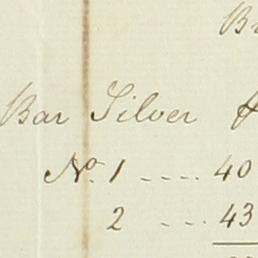 Bar Silver
No. 1 .... 40
2 ... 43